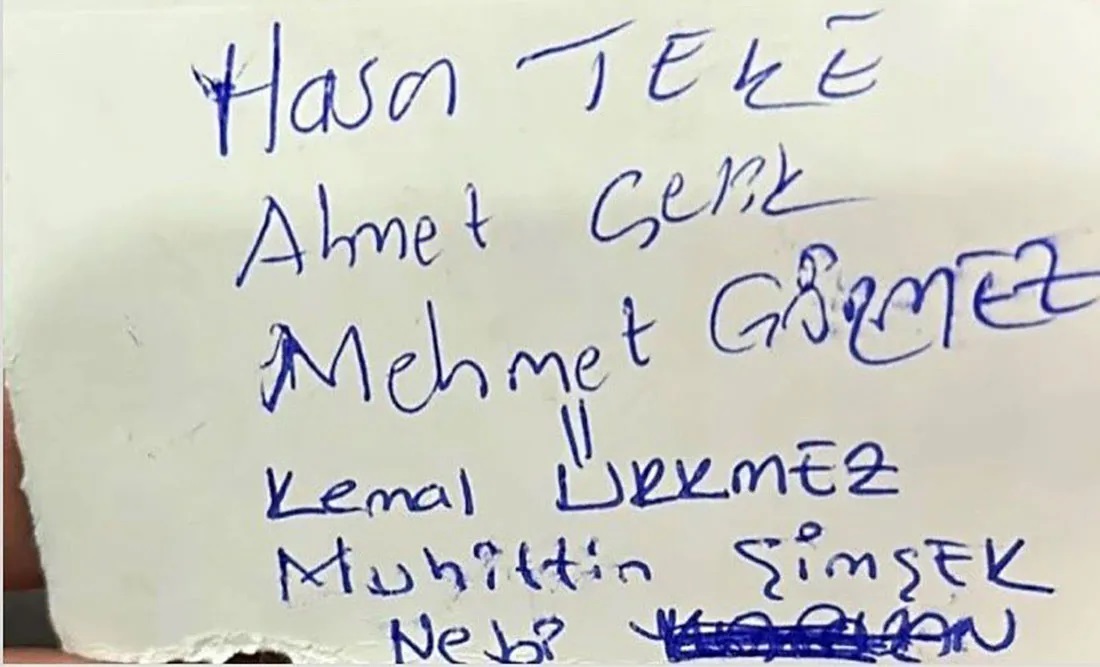 Hasan TEKE
Ahmet Çelik
Mehmet GÖRMEZ
Kemal ÜRKMEZ
Muhittin ŞimşEK
Nebi